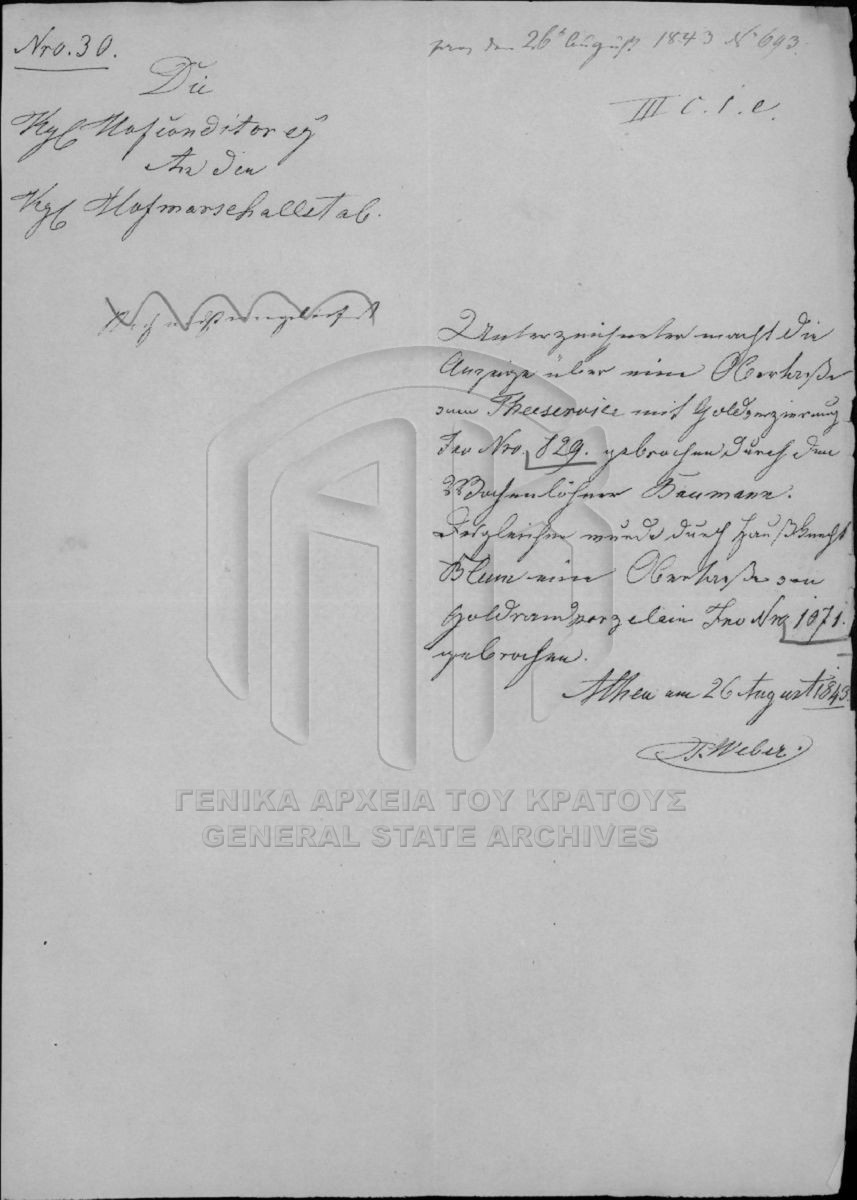 Nro. 30.
praes den 26t August 1843 No 693.
III C. 1. e.
Die
Kgl Hofconditorey
An den
Kgl Hofmarschallstab.
Unterzeichneter macht die
Anzeige über eine Obertaße
vom Theeservice mit Goldverzierung
Inv Nro. 829. gebrochen durch den
Wochenlöhner Baumann.
Desgleichen wurde durch Haußknecht
Blum eine Obertaße von
Goldrandporzelain Inv Nro 1071.
gebrochen.
Athen am 26 August 1843.
Weber.
ΓΕΝΙΚΑ ΑΡΧΕΙΑ ΤΟΥ ΚΡΑΤΟΥΣ
GENERAL STATE ARCHIVES